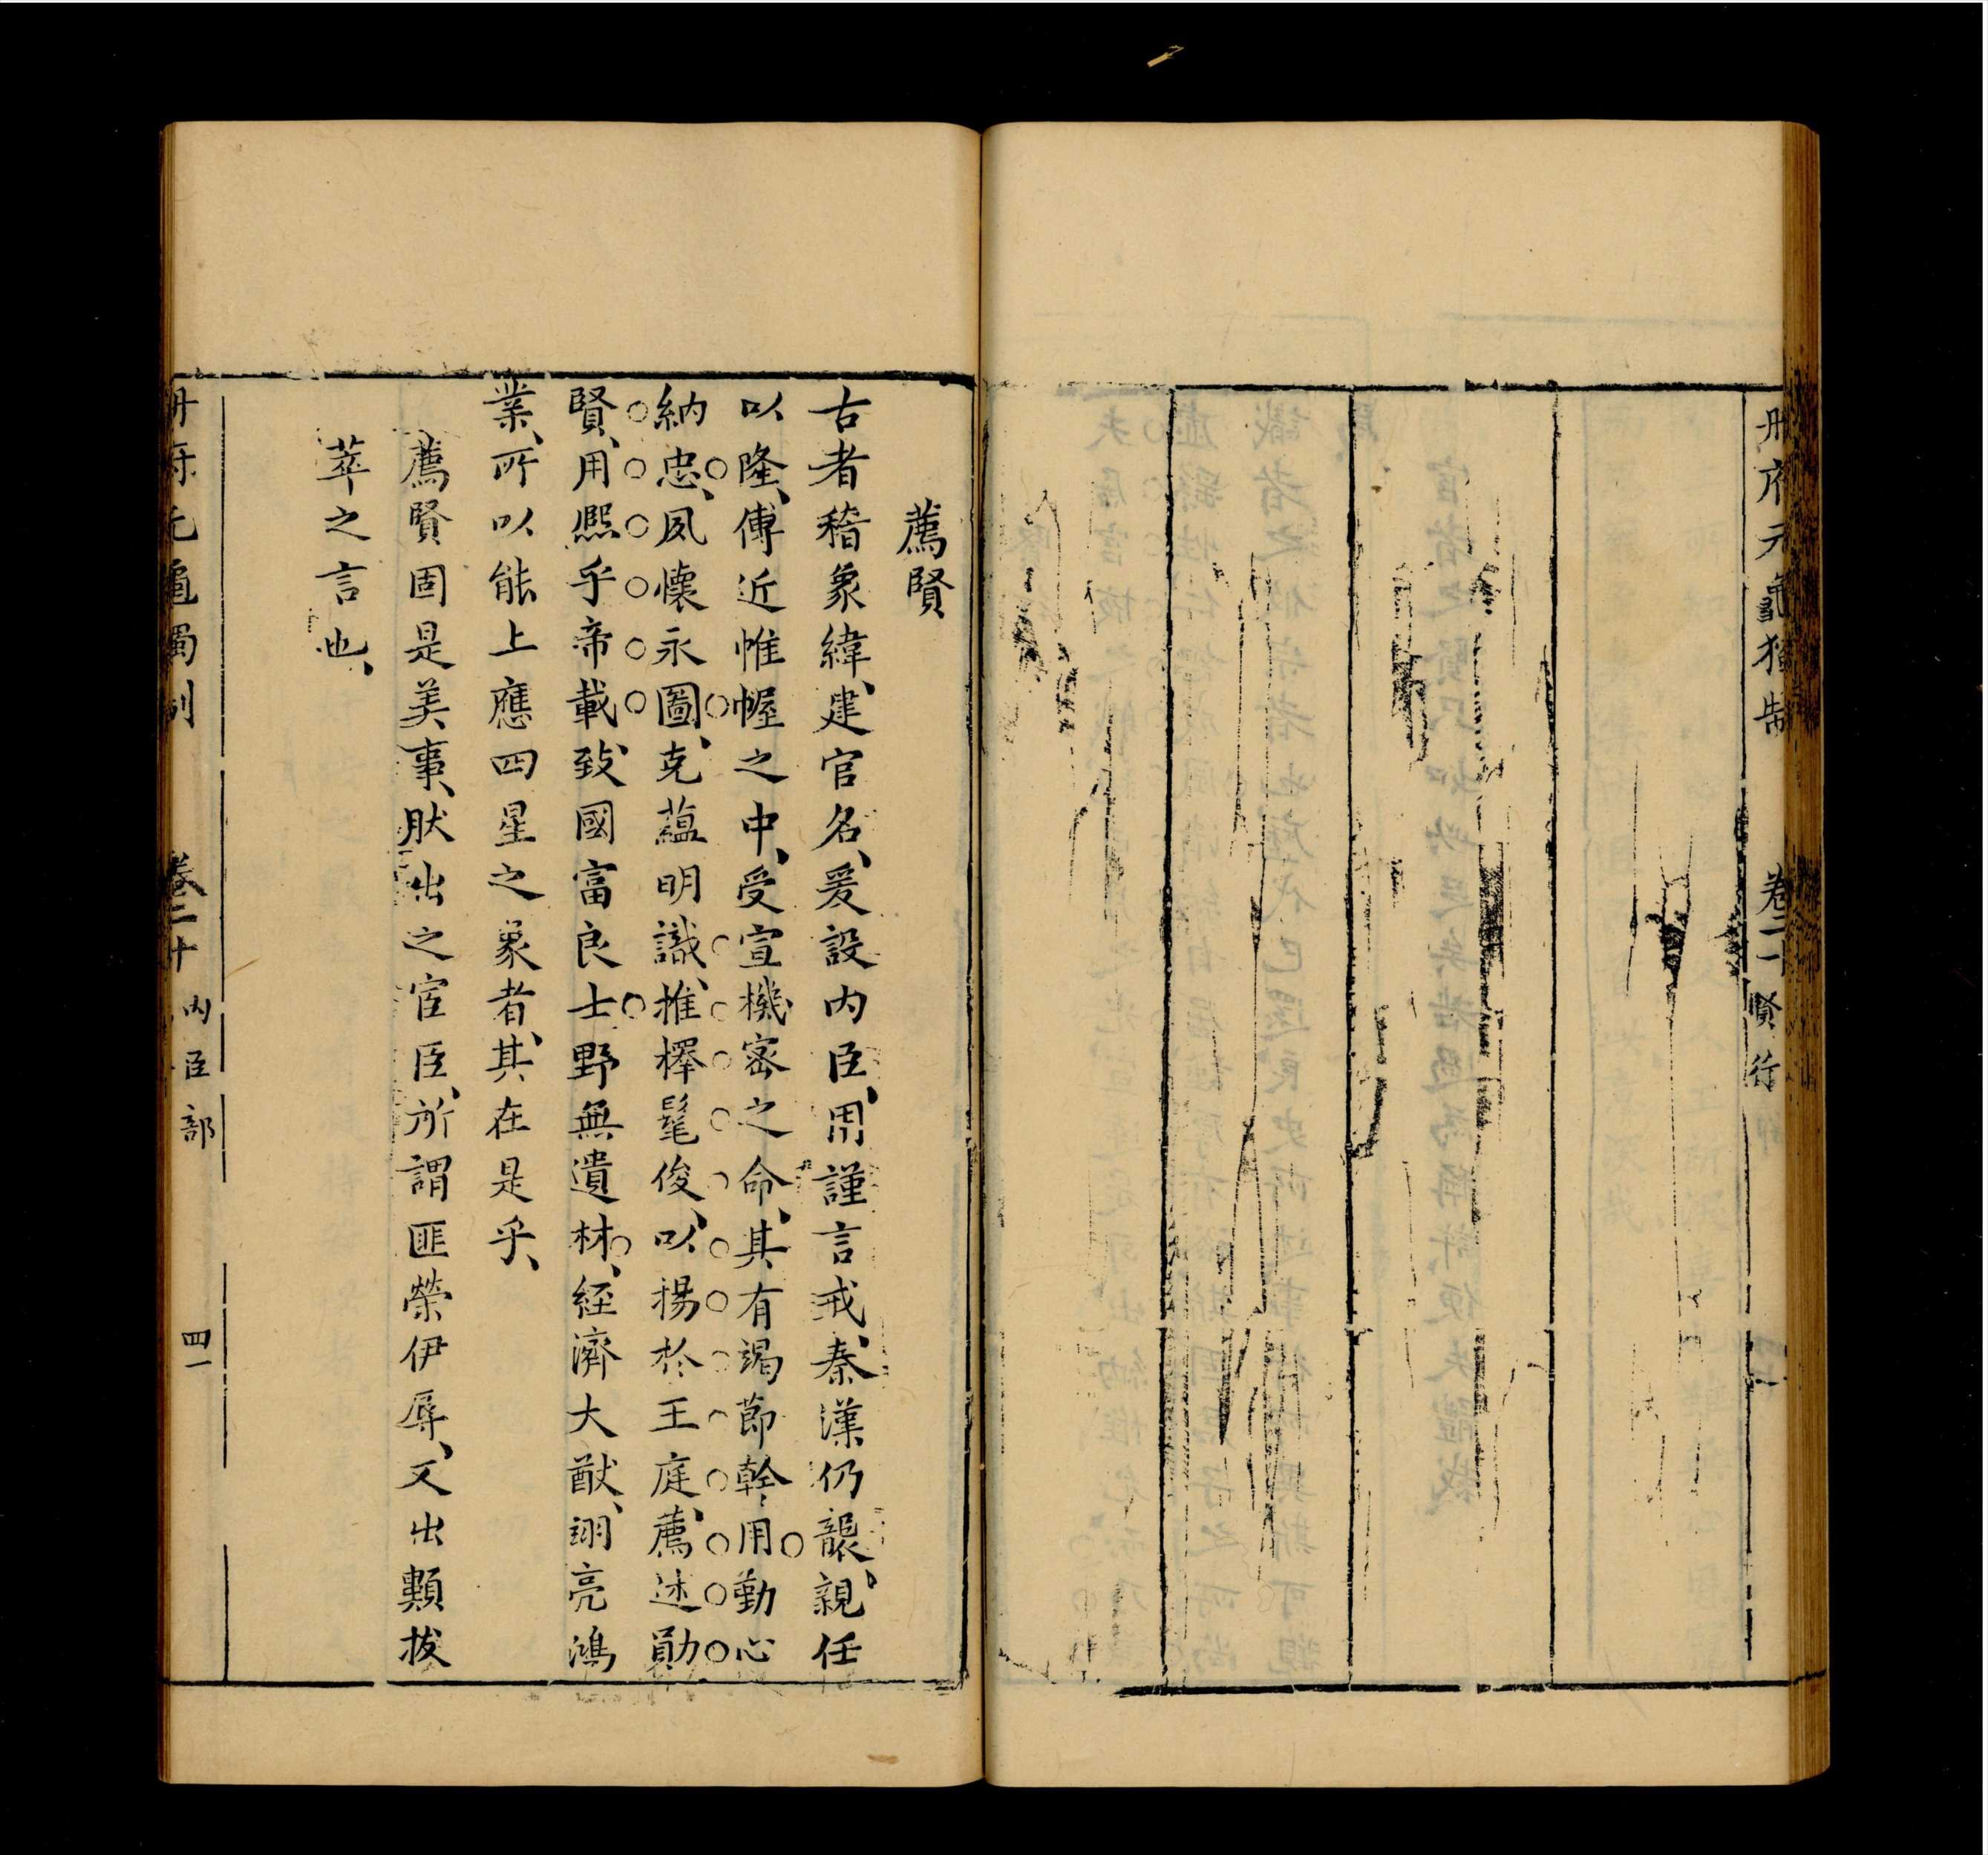 冊府元龜獨制　卷二十　賢行
薦賢
古者稽象緯、建官名、爰設內臣、用謹言戒、秦漢仍襲、親任
以隆、傅近帷幄之中、受宣機密之命、其有竭節幹用勤心
納忠、夙懷永圖、克蘊明識、推擇髦俊、以揚於王庭、薦述勛
賢、用熙乎帝載、致國富良士野無遺材、經濟大猷、翊亮鴻
業、所以能上應四星之象者、其在是乎、
薦賢固是美事、肰出之宦臣、所謂匪榮伊辱、又出類拔
萃之言也、
冊府元龜獨制　卷二十　內臣部　四一